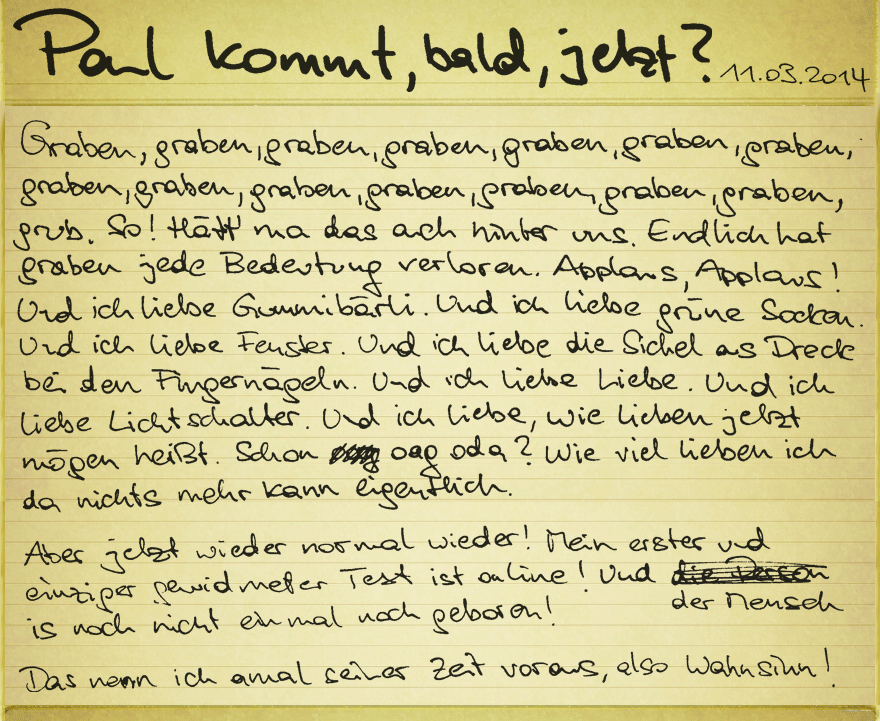 Paul kommt, bald, jetzt? 11.03.2014
Graben, graben, graben, graben, graben, graben, graben,
graben, graben, graben, graben, graben, graben, graben,
grub. So! Hätt' ma das auch hinter uns. Endlich hat
graben jede Bedeutung verloren. Applaus, Applaus!
Und ich liebe Gummibärli. Und ich liebe grüne Socken.
Und ich liebe Fenster. Und ich liebe die Sichel aus Dreck
bei den Fingernägeln. Und ich liebe Liebe. Und ich
liebe Lichtschalter. Und ich liebe, wie lieben jetzt
mögen heißt. Schon oag oda? Wie viel lieben ich
da nichts mehr kann eigentlich.
Aber jetzt wieder normal wieder! Mein erster und
einziger gewidmeter Text ist online! Und die Person
der Mensch
is noch nicht einmal noch geboren!
Das nenn ich amal seiner Zeit voraus, also Wahnsinn!